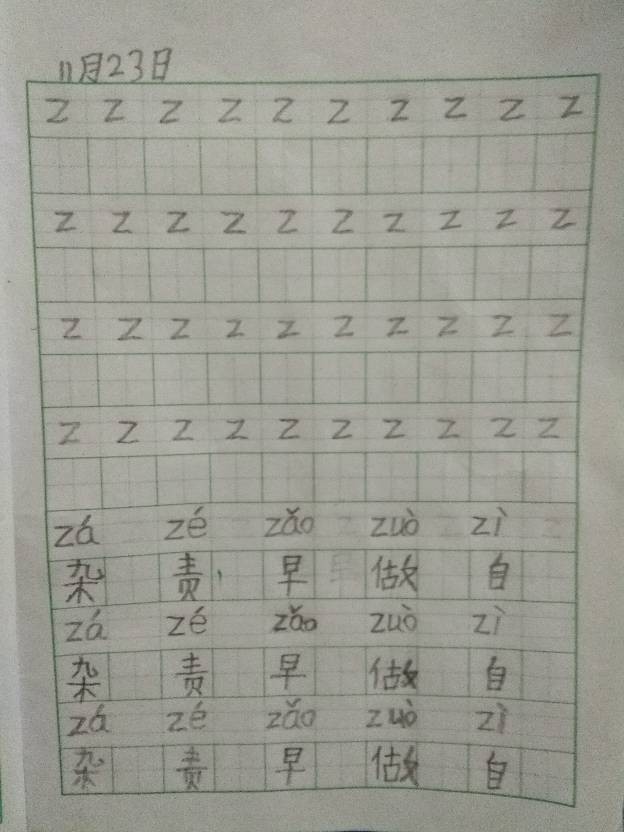 11月23日
z z z z z z z z z z
z z z z z z z z z z
z z z z z z z z z z
z z z z z z z z z z
zá zé zǎo zuò zì
杂 责 早 做 自
zá zé zǎo zuò zì
杂 责 早 做 自
zá zé zǎo zuò zì
杂 责 早 做 自